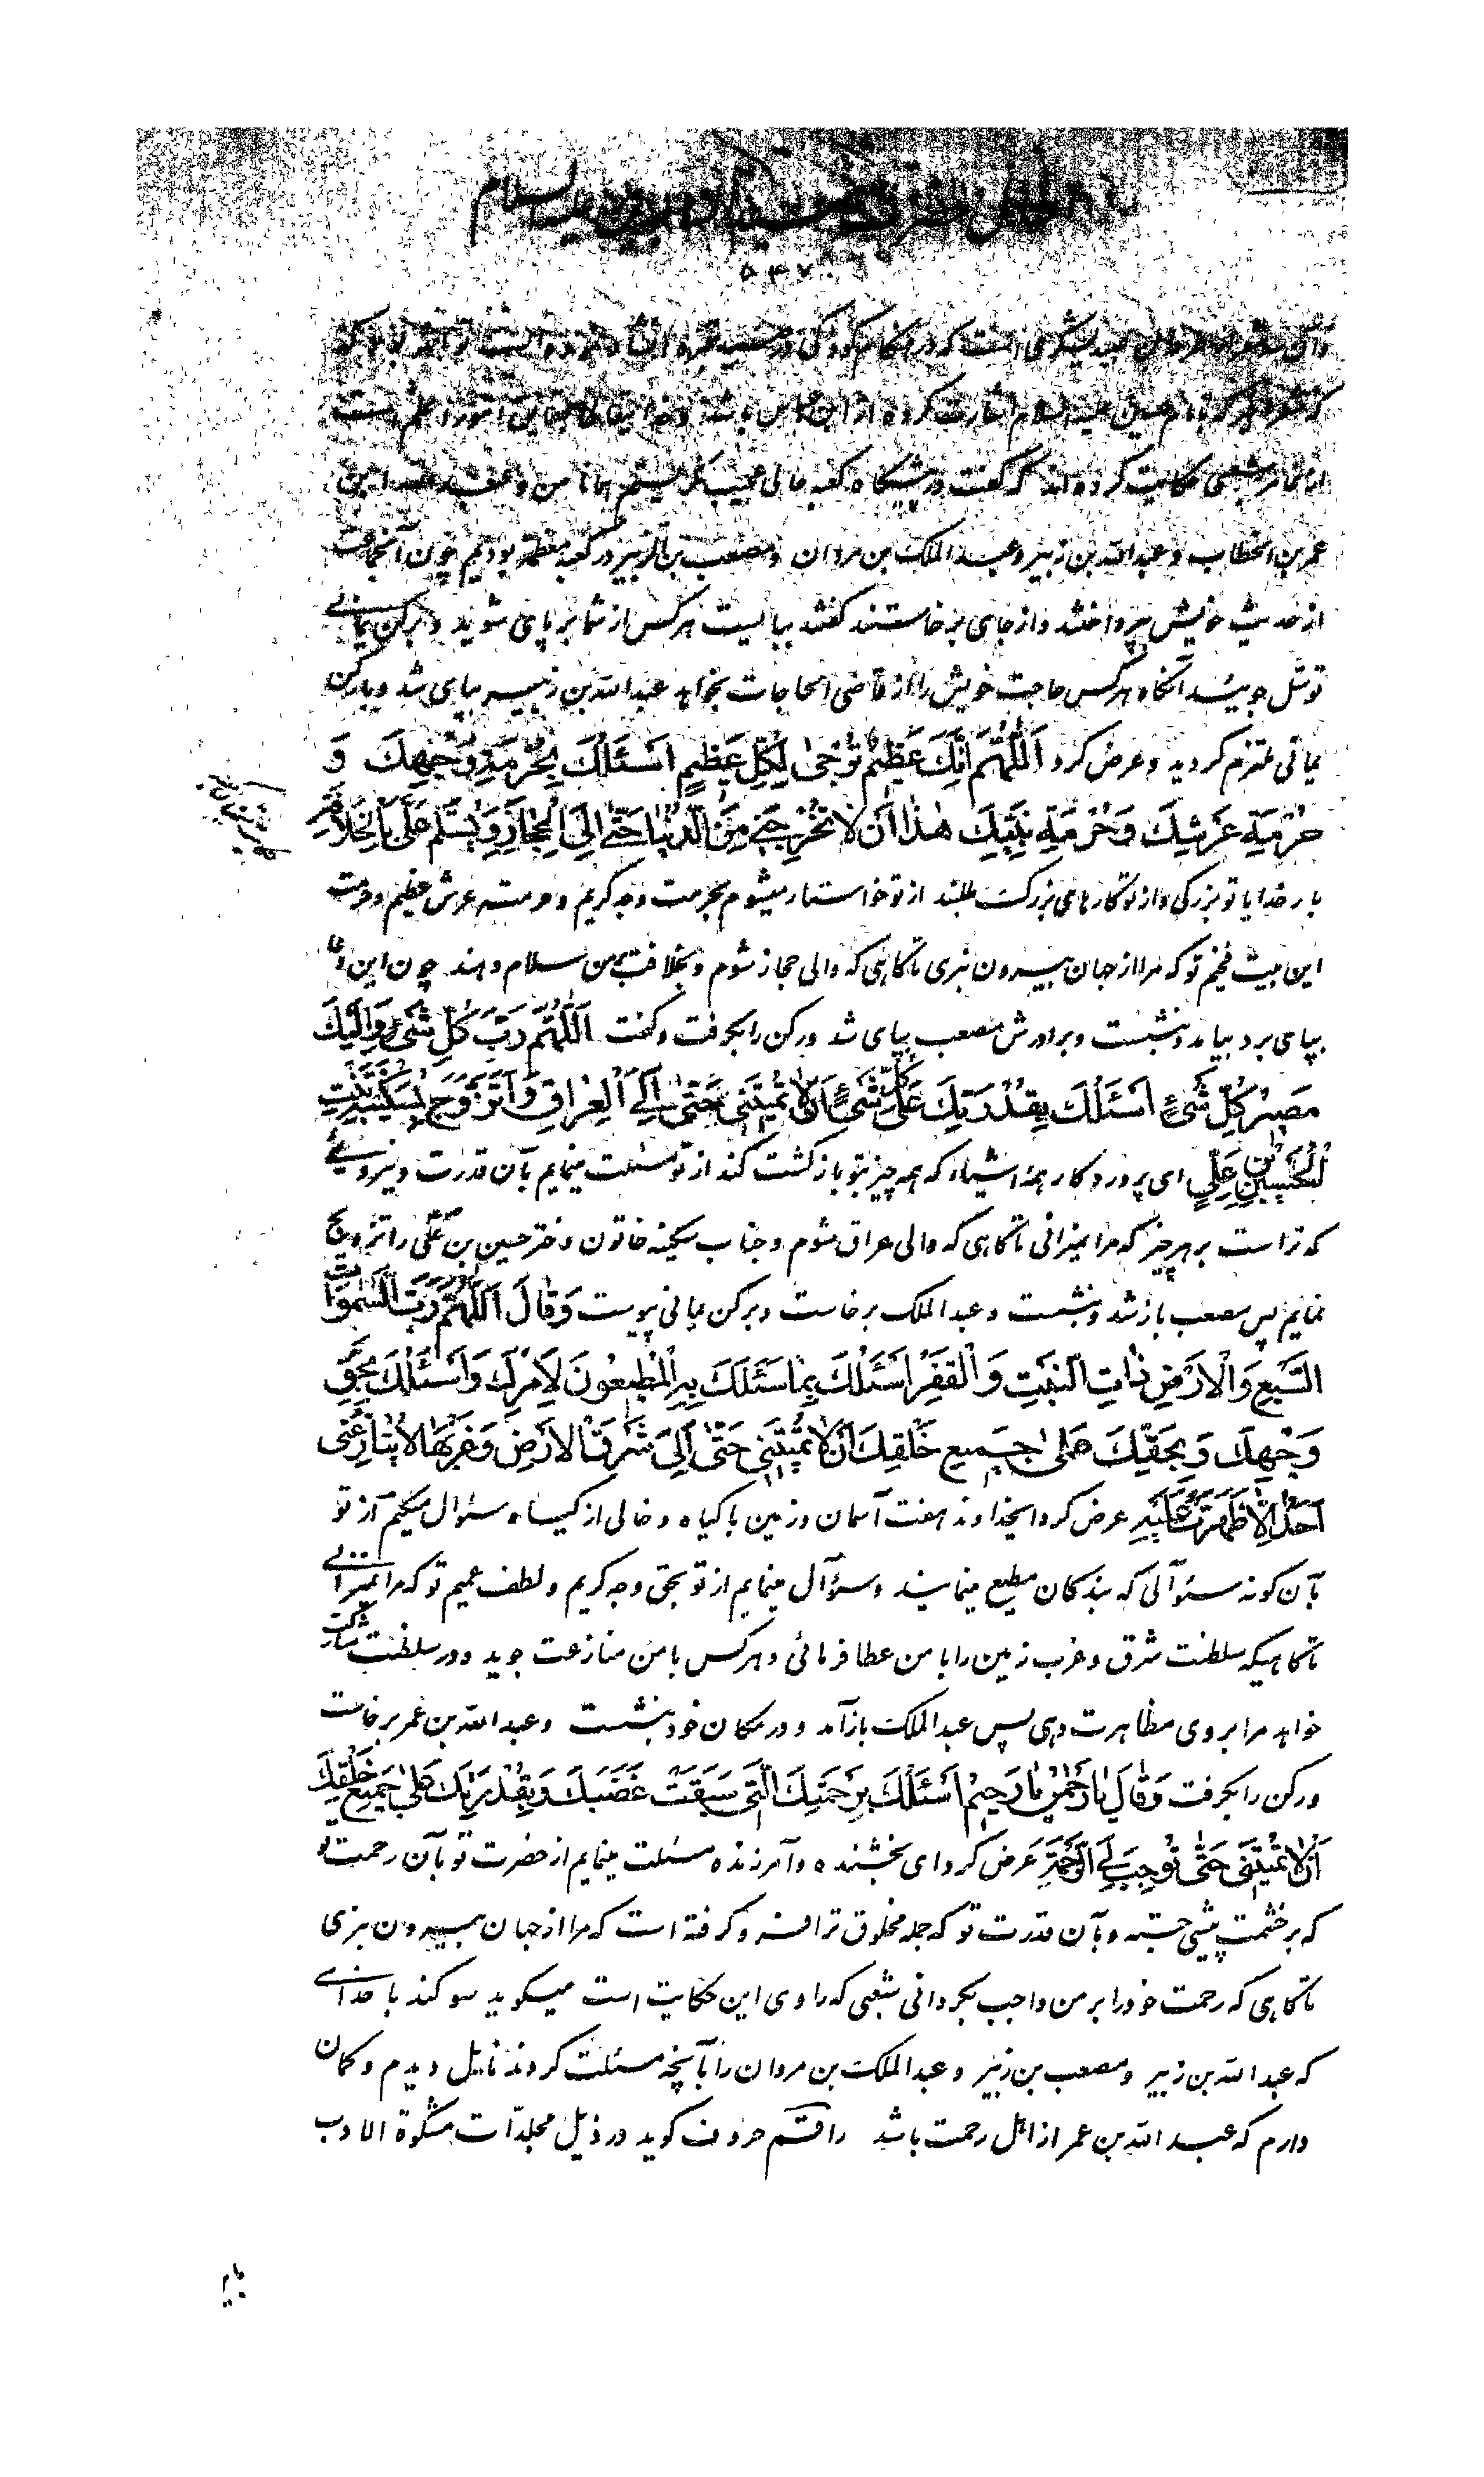 علیه السلام
۵۳۷
است که در هنگام کودکی
علیه السلام اشارت کرده
از عامر شعبی حکایت کرده‌اند که گفت در پیشگاه کعبه حالی عجیب نگریستم همانا من و عبدالله بن
عمر بن الخطاب و عبدالله بن زبیر و عبدالملک بن مروان و مصعب بن الزبیر در کعبه معظمه بودیم چون آنجماعت
از حدیث خویش بپرداختند و از جای برخاستند گفتند ببایست هر کس از شما بر پای شوید و برکن یمانی
توسل جوئید آنگاه هر کس حاجت خویش را از قاضی الحاجات بخواهد عبدالله بن زبیر بپای شد و بارکن
یمانی ملتزم گردید و عرض کرد اَللّهُمَّ اِنَّکَ عَظیمٌ تُرْجیٰ لِکُلِّ عَظیمٍ اَسْئَلُکَ بِحُرْمَةِ وَجْهِکَ وَ
حُرْمَةِ عَرْشِکَ وَحُرْمَةِ بَیْتِکَ هٰذا اَنْ لا تُخْرِجَنی مِنَ الدُّنْیا حَتّیٰ اَلِیَ الْحِجازَ وَیُسَلَّمَ عَلَیَّ بِالْخِلافَةِ
بار خدایا تو بزرگی و از تو کارهای بزرگ طلبند از تو خواستار میشوم بحرمت وجه کریم و حرمت عرش عظیم و حرمت
این بیت فخیم تو که مرا از جهان بیرون نبری تا گاهی که والی حجاز شوم و بخلافت بمن سلام دهند چون این دعا
بپای برد بیامد و بنشست و برادرش مصعب بپای شد و رکن را بگرفت و گفت اَللّهُمَّ رَبَّ کُلِّ شَیْءٍ وَاِلَیْکَ
مَصیرُ کُلِّ شَیْءٍ اَسْئَلُکَ بِقُدْرَتِکَ عَلیٰ کُلِّ شَیْءٍ اَنْ لا تُمیتَنی حَتّیٰ اَلِیَ الْعِراقَ وَاَتَزَوَّجَ بِسَکینَةَ بِنْتِ
الْحُسَیْنِ بْنِ عَلِیٍّ ای پروردگار همه اشیاء که همه چیز بتو بازگشت کند از تو مسئلت مینمایم بآن قدرت و نیروئی
که تراست بر هر چیز که مرا نمیرانی تا گاهی که والی عراق شوم و جناب سکینه خاتون دختر حسین بن علی را تزویج
نمایم پس مصعب باز شد و بنشست و عبدالملک برخاست و برکن یمانی پیوست وَقالَ اَللّهُمَّ رَبَّ السَّمٰواتِ
السَّبْعِ وَالْاَرْضِ ذاتِ النَّبْتِ وَالْقَفْرِ اَسْئَلُکَ بِما سَئَلَکَ بِهِ الْمُطیعُونَ لِاَمْرِکَ وَاَسْئَلُکَ بِحَقِّ
وَجْهِکَ وَبِحَقِّکَ عَلیٰ جَمیعِ خَلْقِکَ اَنْ لا تُمیتَنی حَتّیٰ اَلِیَ شَرْقَ الْاَرْضِ وَغَرْبَها لا یُنازِعُنی
اَحَدٌ اِلّا ظَهَرْتُ عَلَیْهِ عرض کرد ایخداوند هفت آسمان و زمین با گیاه و خالی از گیاه سئوال میکنم از تو
بآن گونه سئوالی که بندگان مطیع مینمایند و سئوال مینمایم از تو بحق وجه کریم و لطف عمیم تو که مرا نمیرانی
تا گاهیکه سلطنت شرق و غرب زمین را با من عطا فرمائی و هر کس با من منازعت جوید و در سلطنت مشارکت
خواهد مرا بروی مظاهرت دهی پس عبدالملک بازآمد و در مکان خود بنشست و عبدالله بن عمر برخاست
و رکن را بگرفت وَقالَ یا رَحْمٰنُ یا رَحیمُ اَسْئَلُکَ بِرَحْمَتِکَ الَّتی سَبَقَتْ غَضَبَکَ وَبِقُدْرَتِکَ عَلیٰ جَمیعِ خَلْقِکَ
اَنْ لا تُمیتَنی حَتّیٰ تُوجِبَ لِیَ الرَّحْمَةَ عرض کرد ای بخشنده و آمرزنده مسئلت مینمایم از حضرت تو بآن رحمت تو
که بر خشمت پیشی جسته و بآن قدرت تو که جمله مخلوق ترا فرو گرفته است که مرا از جهان بیرون نبری
تا گاهی که رحمت خود را بر من واجب بگردانی شعبی که راوی این حکایت است میگوید سوگند با خدای
که عبدالله بن زبیر و مصعب بن زبیر و عبدالملک بن مروان را بآنچه مسئلت کردند نایل دیدم و گمان
دارم که عبدالله بن عمر از اهل رحمت باشد راقم حروف گوید در ذیل مجلدات مشکوة الادب